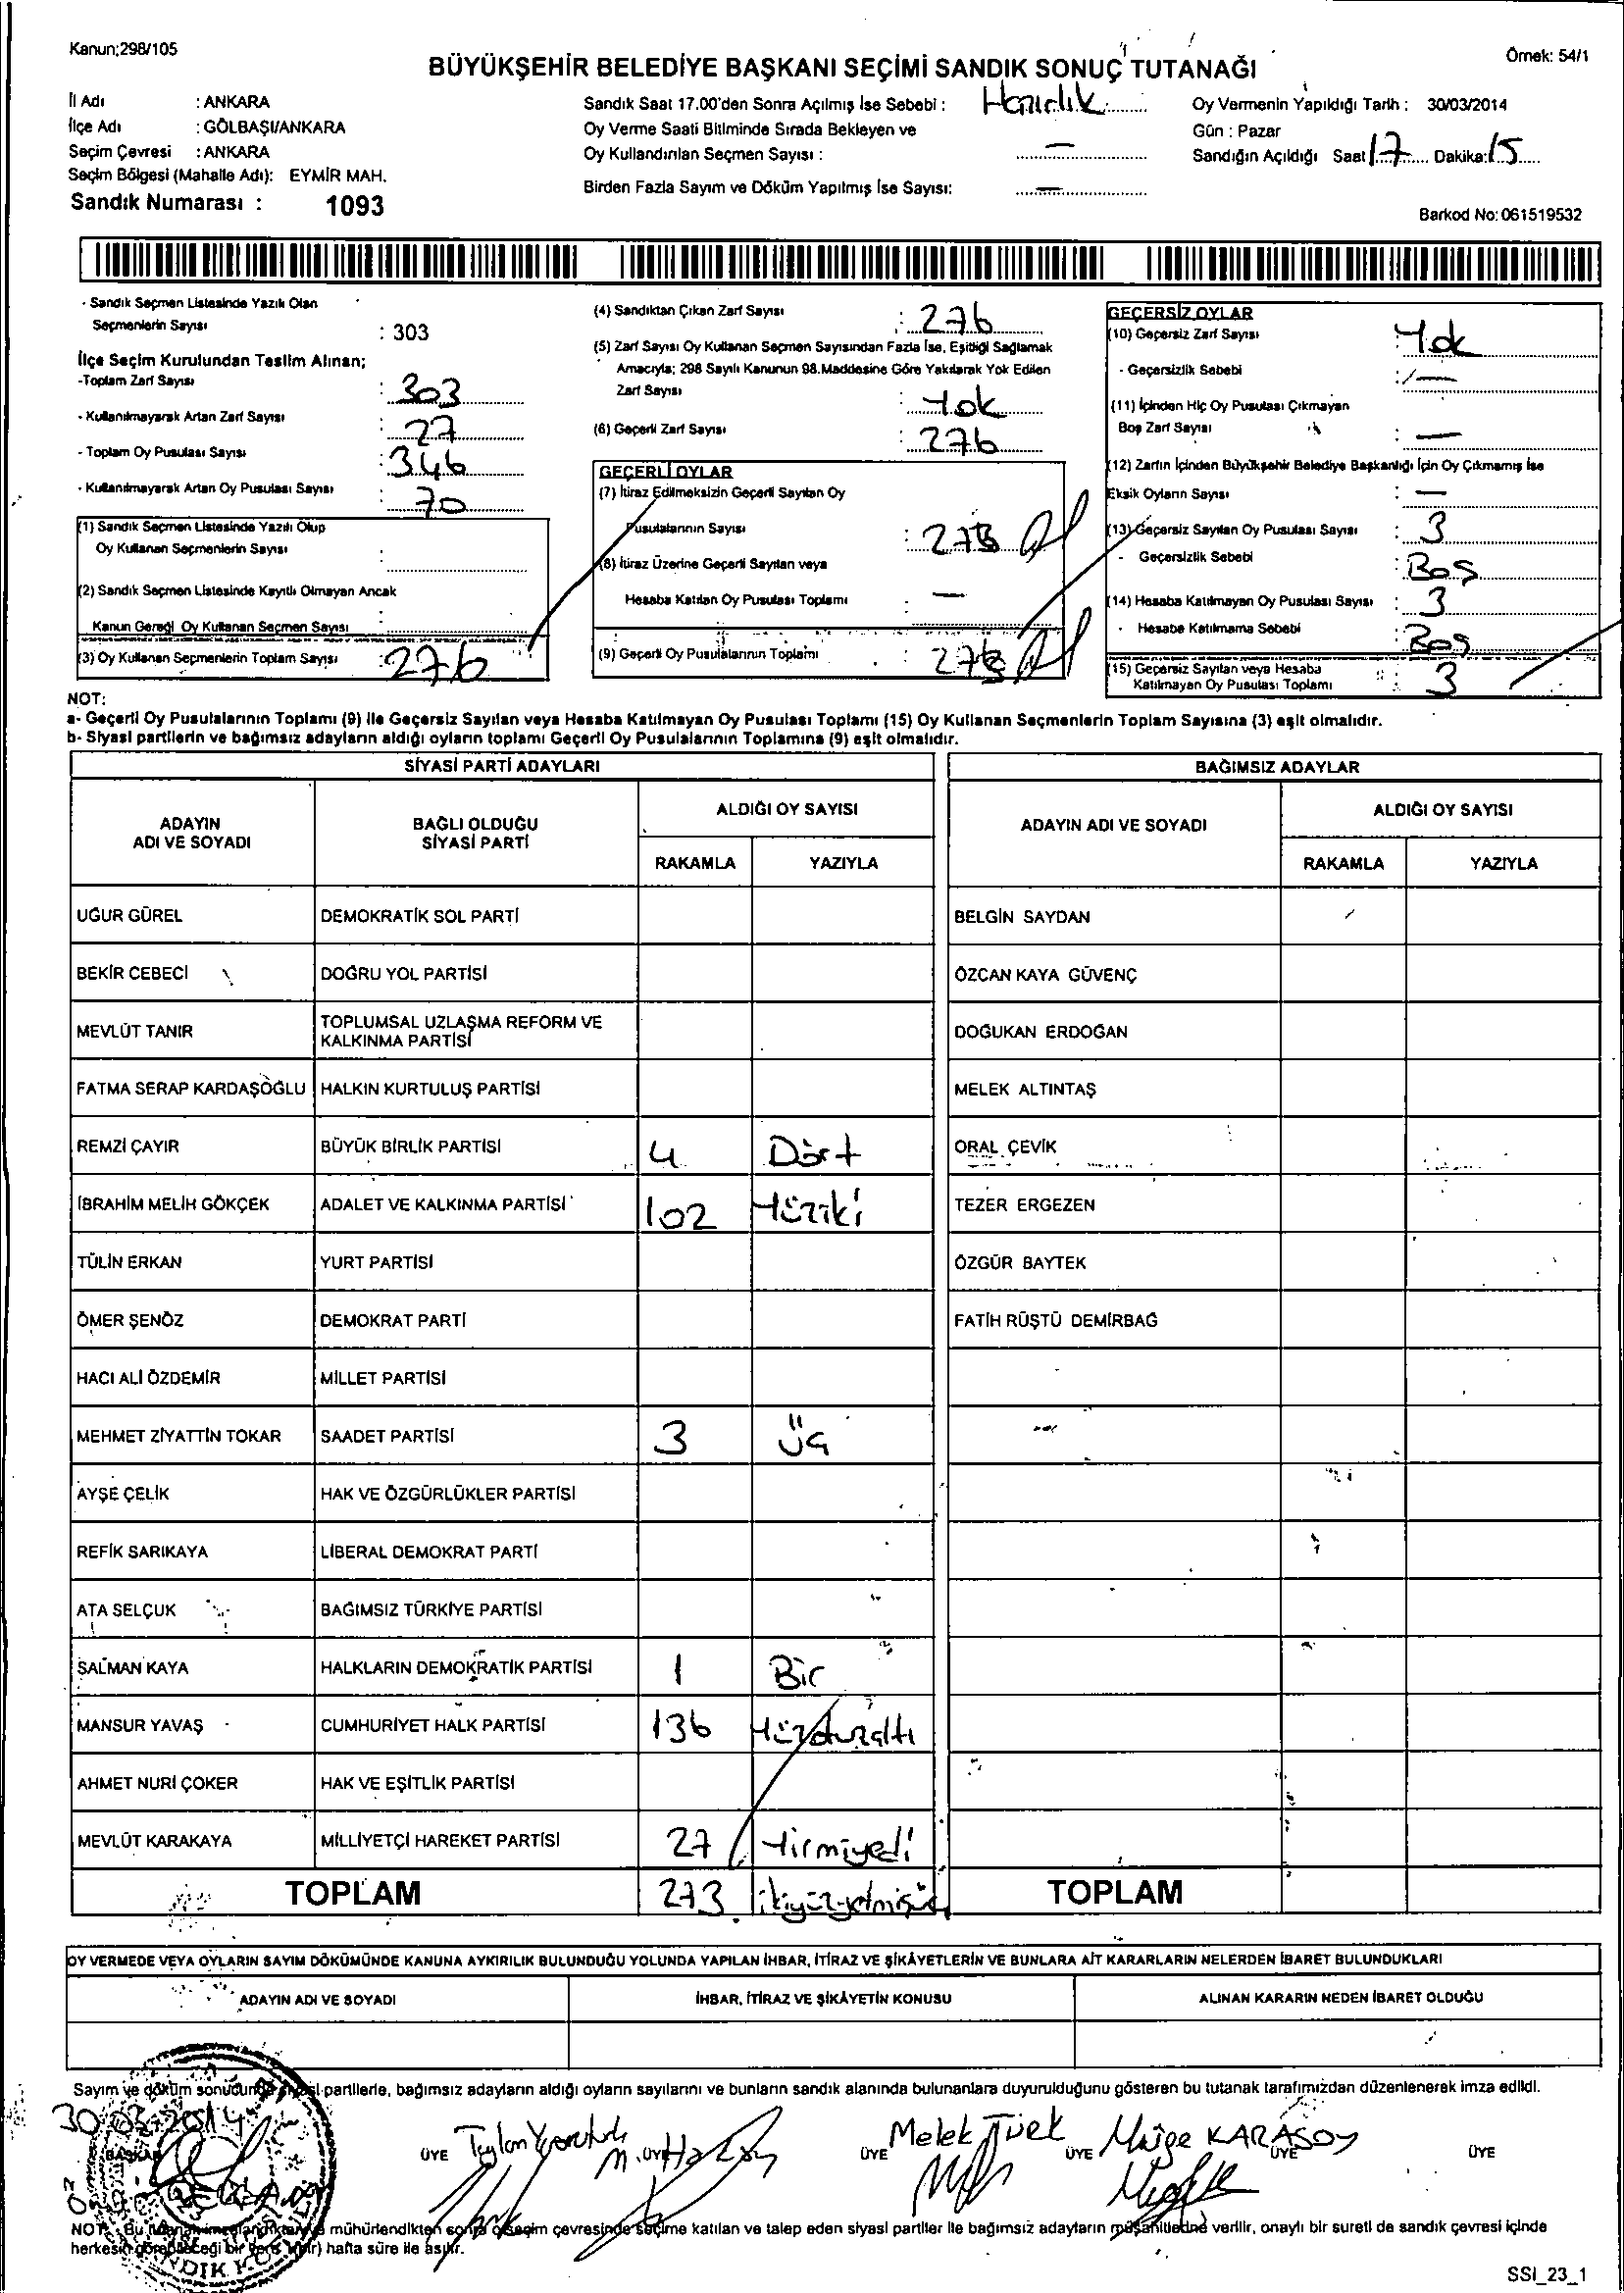 Kanun;298/105
Örnek: 54/1
BÜYÜKŞEHİR BELEDİYE BAŞKANI SEÇİMİ SANDIK SONUÇ TUTANAĞI
İl Adı : ANKARA
İlçe Adı : GÖLBAŞI/ANKARA
Seçim Çevresi : ANKARA
Seçim Bölgesi (Mahalle Adı): EYMİR MAH.
Sandık Numarası : 1093
Sandık Saat 17.00'den Sonra Açılmış İse Sebebi : Hazırlık
Oy Verme Saati Bitiminde Sırada Bekleyen ve
Oy Kullandırılan Seçmen Sayısı : —
Birden Fazla Sayım ve Döküm Yapılmış İse Sayısı: —
Oy Vermenin Yapıldığı Tarih : 30/03/2014
Gün : Pazar
Sandığın Açıldığı Saat 17 Dakika: 15
Barkod No: 061519532
- Sandık Seçmen Listesinde Yazılı Olan
Seçmenlerin Sayısı : 303
İlçe Seçim Kurulundan Teslim Alınan;
-Toplam Zarf Sayısı : 303
- Kullanılmayarak Artan Zarf Sayısı : 27
- Toplam Oy Pusulası Sayısı : 346
- Kullanılmayarak Artan Oy Pusulası Sayısı : 70
(1) Sandık Seçmen Listesinde Yazılı Olup
Oy Kullanan Seçmenlerin Sayısı :
(2) Sandık Seçmen Listesinde Kayıtlı Olmayan Ancak
Kanun Gereği Oy Kullanan Seçmen Sayısı :
(3) Oy Kullanan Seçmenlerin Toplam Sayısı : 276
(4) Sandıktan Çıkan Zarf Sayısı : 276
(5) Zarf Sayısı Oy Kullanan Seçmen Sayısından Fazla İse, Eşitliği Sağlamak
Amacıyla; 298 Sayılı Kanunun 98.Maddesine Göre Yakılarak Yok Edilen
Zarf Sayısı : Yok
(6) Geçerli Zarf Sayısı : 276
GEÇERLİ OYLAR
(7) İtiraz Edilmeksizin Geçerli Sayılan Oy
Pusulalarının Sayısı : 273
(8) İtiraz Üzerine Geçerli Sayılan veya
Hesaba Katılan Oy Pusulası Toplamı : —
(9) Geçerli Oy Pusulalarının Toplamı : 273
GEÇERSİZ OYLAR
(10) Geçersiz Zarf Sayısı : Yok
- Geçersizlik Sebebi : —
(11) İçinden Hiç Oy Pusulası Çıkmayan
Boş Zarf Sayısı : —
(12) Zarfın İçinden Büyükşehir Belediye Başkanlığı İçin Oy Çıkmamış İse
Eksik Oyların Sayısı : —
(13) Geçersiz Sayılan Oy Pusulası Sayısı : 3
- Geçersizlik Sebebi : Boş
(14) Hesaba Katılmayan Oy Pusulası Sayısı : 3
- Hesaba Katılmama Sebebi : Boş
(15) Geçersiz Sayılan veya Hesaba
Katılmayan Oy Pusulası Toplamı : 3
NOT:
a- Geçerli Oy Pusulalarının Toplamı (9) ile Geçersiz Sayılan veya Hesaba Katılmayan Oy Pusulası Toplamı (15) Oy Kullanan Seçmenlerin Toplam Sayısına (3) eşit olmalıdır.
b- Siyasi partilerin ve bağımsız adayların aldığı oyların toplamı Geçerli Oy Pusulalarının Toplamına (9) eşit olmalıdır.
SİYASİ PARTİ ADAYLARI BAĞIMSIZ ADAYLAR
ADAYIN ADI VE SOYADI BAĞLI OLDUĞU SİYASİ PARTİ ALDIĞI OY SAYISI ADAYIN ADI VE SOYADI ALDIĞI OY SAYISI
RAKAMLA YAZIYLA RAKAMLA YAZIYLA
UĞUR GÜREL DEMOKRATİK SOL PARTİ BELGİN SAYDAN
BEKİR CEBECİ DOĞRU YOL PARTİSİ ÖZCAN KAYA GÜVENÇ
MEVLÜT TANIR TOPLUMSAL UZLAŞMA REFORM VE KALKINMA PARTİSİ DOĞUKAN ERDOĞAN
FATMA SERAP KARDAŞOĞLU HALKIN KURTULUŞ PARTİSİ MELEK ALTINTAŞ
REMZİ ÇAYIR BÜYÜK BİRLİK PARTİSİ 4 Dört ORAL ÇEVİK
İBRAHİM MELİH GÖKÇEK ADALET VE KALKINMA PARTİSİ 102 Yüziki TEZER ERGEZEN
TÜLİN ERKAN YURT PARTİSİ ÖZGÜR BAYTEK
ÖMER ŞENÖZ DEMOKRAT PARTİ FATİH RÜŞTÜ DEMİRBAĞ
HACI ALİ ÖZDEMİR MİLLET PARTİSİ
MEHMET ZİYATTİN TOKAR SAADET PARTİSİ 3 Üç
AYŞE ÇELİK HAK VE ÖZGÜRLÜKLER PARTİSİ
REFİK SARIKAYA LİBERAL DEMOKRAT PARTİ
ATA SELÇUK BAĞIMSIZ TÜRKİYE PARTİSİ
SALMAN KAYA HALKLARIN DEMOKRATİK PARTİSİ 1 Bir
MANSUR YAVAŞ CUMHURİYET HALK PARTİSİ 136 Yüzotuzaltı
AHMET NURİ ÇOKER HAK VE EŞİTLİK PARTİSİ
MEVLÜT KARAKAYA MİLLİYETÇİ HAREKET PARTİSİ 27 Yirmiyedi
TOPLAM 273 ikiyüzyetmişüç TOPLAM
OY VERMEDE VEYA OYLARIN SAYIM DÖKÜMÜNDE KANUNA AYKIRILIK BULUNDUĞU YOLUNDA YAPILAN İHBAR, İTİRAZ VE ŞİKÂYETLERİN VE BUNLARA AİT KARARLARIN NELERDEN İBARET BULUNDUKLARI
ADAYIN ADI VE SOYADI İHBAR, İTİRAZ VE ŞİKÂYETİN KONUSU ALINAN KARARIN NEDEN İBARET OLDUĞU
Sayım ve döküm sonucunda siyasi partilerle, bağımsız adayların aldığı oyların sayılarını ve bunların sandık alanında bulunanlara duyurulduğunu gösteren bu tutanak tarafımızdan düzenlenerek imza edildi.
30.03.2014
BAŞKAN ÜYE ÜYE ÜYE Melek Türk ÜYE Müge KARASOY ÜYE ÜYE
NOT: Bu tutanak imzalandıktan ve mühürlendikten sonra o seçim çevresinde seçime katılan ve talep eden siyasi partiler ile bağımsız adayların müşahitlerine verilir, onaylı bir sureti de sandık çevresi içinde
herkesin görebileceği bir yere (bir) hafta süre ile asılır.
SSI_23_1